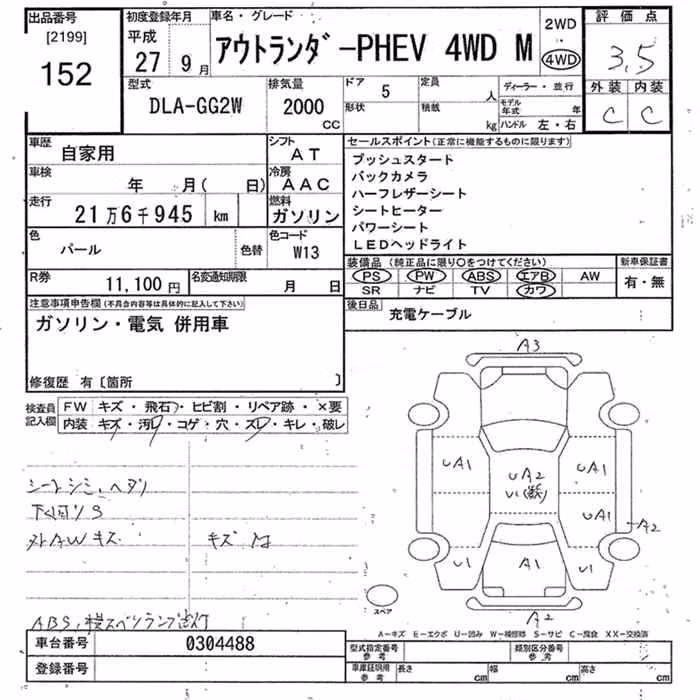 出品番号
[2199]
152
初度登録年月
平成
27 9月
車名・グレード
アウトランダ-PHEV 4WD M
2WD
・
4WD
評価点
3.5
外装 内装
C C
型式
DLA-GG2W
排気量
2000
CC
ドア 5
形状
定員 人
積載 kg
ディーラー・並行
モデル年式 年
ハンドル 左・右
車歴
自家用
シフト
AT
車検
年 月( 日)
冷房
AAC
走行
21万6千945 km
燃料
ガソリン
色
パール
色替
色コード
W13
R券
11,100円
名変通知期限
月 日
セールスポイント(正常に機能するものに限ります)
プッシュスタート
バックカメラ
ハーフレザーシート
シートヒーター
パワーシート
LEDヘッドライト
装備品 (純正品に限り○をつけてください)
PS PW ABS エアB AW
SR ナビ TV カワ
新車保証書
有・無
後日品
充電ケーブル
注意事項申告欄(不具合内容等は具体的に記入して下さい)
ガソリン・電気 併用車
修復歴 有〔箇所 〕
検査員
記入欄
FW キズ・飛石・ヒビ割・リペア跡・×要
内装 キズ・汚レ・コゲ・穴・スレ・キレ・破レ
シートシミ、ヘタリ
下回りS
外AWキズ
キズ
A3
UA1
UA2
U1
A1
UA1
A2
U1
A1
U1
A2
スペア
A-キズ E-エクボ U-凹み W-補修跡 S-サビ C-腐食 XX-交換済
車台番号 0304488
登録番号
型式指定番号
参考
類別区分番号
参考
車庫証明用
参考
長さ cm
幅 cm
高さ cm